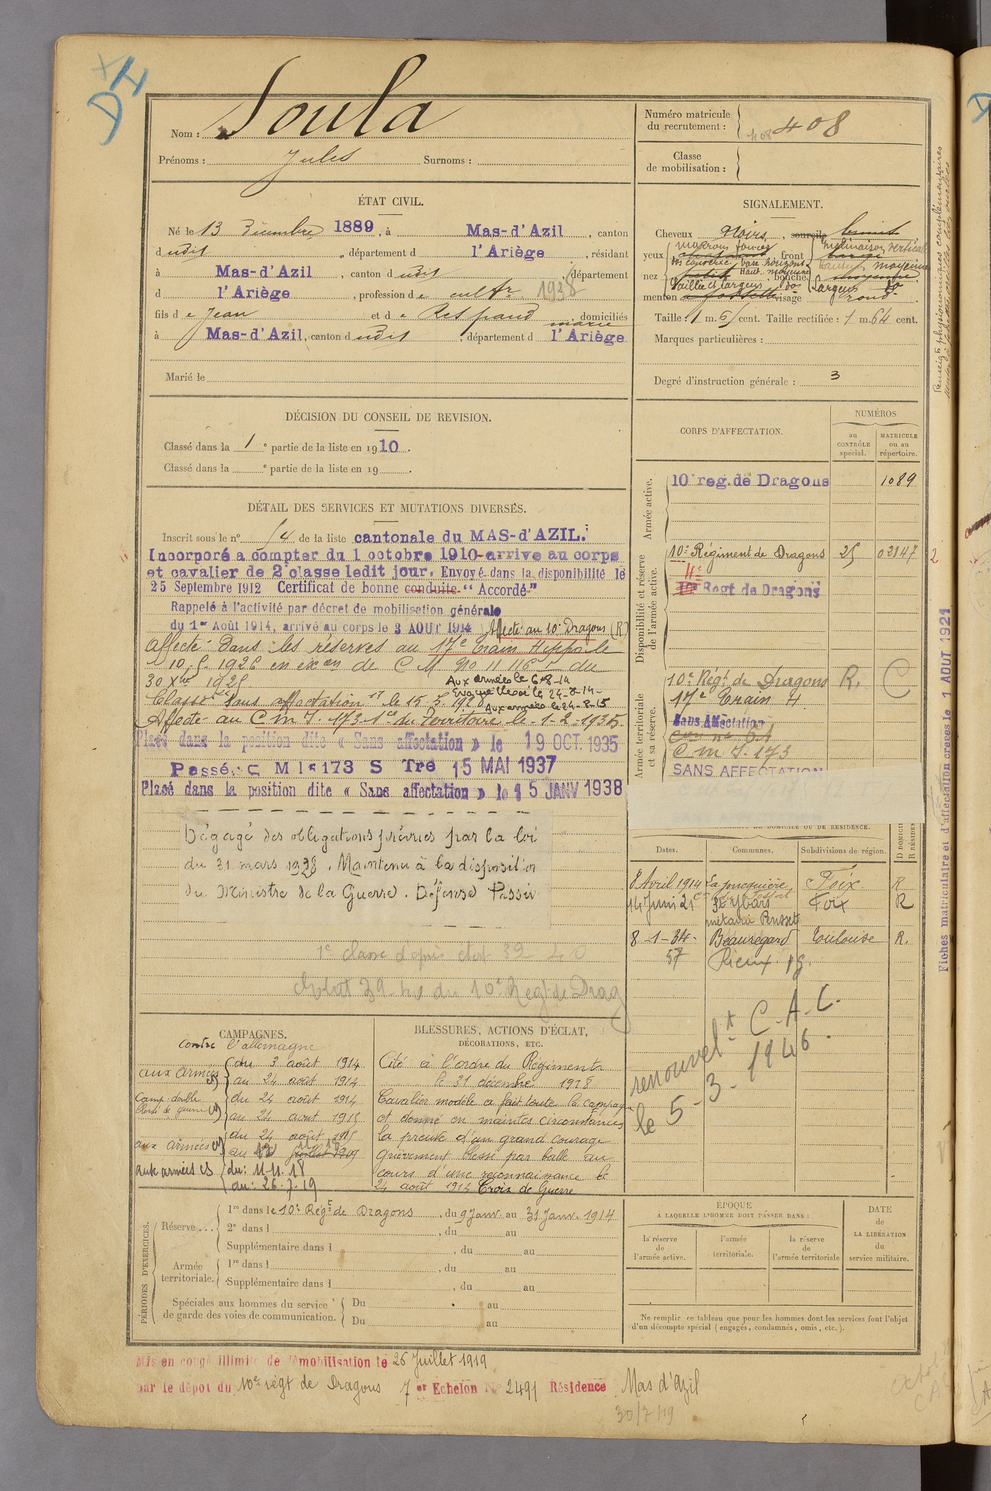 DH
Nom : Soula
Prénoms : Jules Surnoms :
Numéro matricule
du recrutement : 408 408
Classe
de mobilisation :
ÉTAT CIVIL.
Né le 13 Décembre 1889, à Mas-d'Azil, canton
dudit, département d l'Ariège, résidant
à Mas-d'Azil, canton dudit, département
d l'Ariège, profession de cultr 1938
fils de Jean et de Respaud marie domiciliés
à Mas-d'Azil, canton dudit, département d l'Ariège
Marié le
SIGNALEMENT.
Cheveux Noirs, sourcils
yeux marrons foncés front inclinaison verticale
nez base horizontale Haut. moyenne bouche hauteur moyenne
Saillie et largeur do Largeur do
menton visage rond
Taille : 1 m. 61 cent. Taille rectifiée : 1 m. 64 cent.
Marques particulières :
Degré d'instruction générale : 3
DÉCISION DU CONSEIL DE REVISION.
Classé dans la 1e partie de la liste en 1910.
Classé dans la e partie de la liste en 19 .
CORPS D'AFFECTATION.
NUMÉROS
au CONTRÔLE spécial.
MATRICULE ou au répertoire.
Armée active.
10e reg. de Dragons 1089
Disponibilité et réserve de l'armée active.
10e Régiment de Dragons 25 02147 2
Regt de Dragons
Armée territoriale et sa réserve.
10e Régt de Dragons R. C
17e Train H.
Sans Affectation
C m I. 173
SANS AFFECTATION
DÉTAIL DES SERVICES ET MUTATIONS DIVERSES.
Inscrit sous le n° 14 de la liste cantonale du MAS-d'AZIL.
Incorporé a compter du 1 octobre 1910-arrive au corps
et cavalier de 2e classe ledit jour. Envoyé dans la disponibilité le
25 Septembre 1912 Certificat de bonne conduite "Accordé"
Rappelé à l'activité par décret de mobilisation générale
du 1er Août 1914, arrivé au corps le 3 AOUT 1914 Affecté au 10e Dragons (R)
Affecté dans les réserves au 17e Train Hippo le
10.5.1926 en exon de C M 90 11 116 du
30 Xbre 1925 Aux armées le 6-8-14
Evacué blessé le 24-8-14
Classé Sans affectation le 15.5.1928 Aux armées le 24-8-15
Affecté au C m I. 173 1er du Territoire le 1-2-1935.
Placé dans la position dite « Sans affectation » le 19 OCT. 1935
Passé C M I 173 S Tre 15 MAI 1937
Placé dans la position dite « Sans affectation » le 15 JANV 1938
Dégagé des obligations prévues par la loi
du 31 mars 1928. Maintenu à la disposition
du Ministre de la Guerre. Défense Passive
1e classe depuis
du 10e Regt de Drag
DE DOMICILE OU DE RÉSIDENCE.
Dates. Communes. Subdivisions de région. D DOMICILE R RÉSIDENCE
8 Avril 1914 Foix R
14 Juin 21 Foix R
métairie
8-1-34 Beauregard Toulouse R.
57 Rieux
renouvelt C.A.C.
le 5-3-1946.
CAMPAGNES.
contre l'allemagne
aux armées du 3 août 1914
au 24 août 1914
Camp. double du 24 août 1914
au 24 août 1915
du 24 août 1915
aux armées
aux armées du : 11.11.18
au : 26.7.19
BLESSURES, ACTIONS D'ÉCLAT,
DÉCORATIONS, ETC.
Cité à l'ordre du Régiment
le 31 décembre 1918
Cavalier modèle a fait toute la campagne
et donné en maintes circonstances
la preuve d'un grand courage
grièvement blessé par balle au
cours d'une reconnaissance le
24 août 1914 Croix de Guerre
PÉRIODES D'EXERCICES.
Réserve ... 1re dans le 10e Régt de Dragons, du 9 Janv. au 31 Janv. 1914
2e dans l , du au
Supplémentaire dans l , du au
Armée territoriale. 1re dans l , du au
Supplémentaire dans l , du au
Spéciales aux hommes du service de garde des voies de communication. Du au
Du au
ÉPOQUE
A LAQUELLE L'HOMME DOIT PASSER DANS :
la réserve de l'armée active.
l'armée territoriale.
la réserve de l'armée territoriale
DATE de LA LIBÉRATION du service militaire.
Ne remplir ce tableau que pour les hommes dont les services font l'objet
d'un décompte spécial (engagés, condamnés, omis, etc.).
Mis en congé illimité de démobilisation le 26 Juillet 1919
par le dépôt du 10e régt de Dragons 7er Echelon N° 2491 Résidence Mas d'azil
30/7/19
Fiches matriculaire et d'affectation créées le 1 AOUT 1921